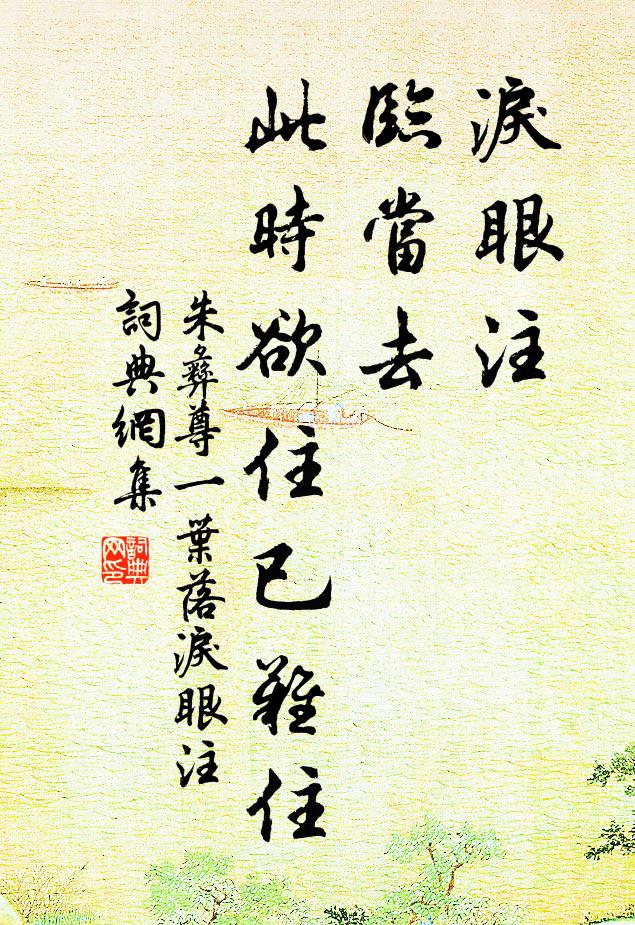 淚眼注
臨當去
此時欲住已難住
朱彝尊一葉落淚眼注
詞典網集
詞典
网印